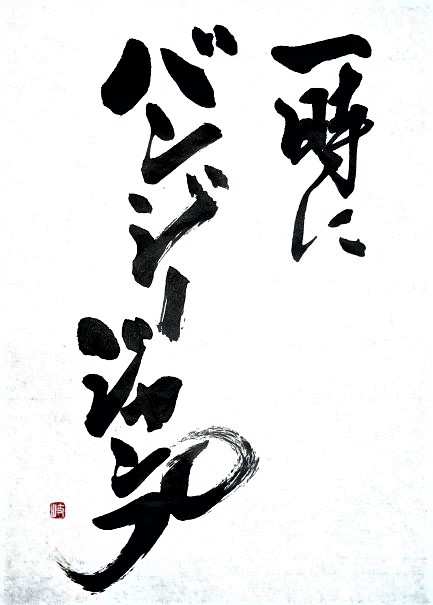 一時に
バンジージャンプ
岐